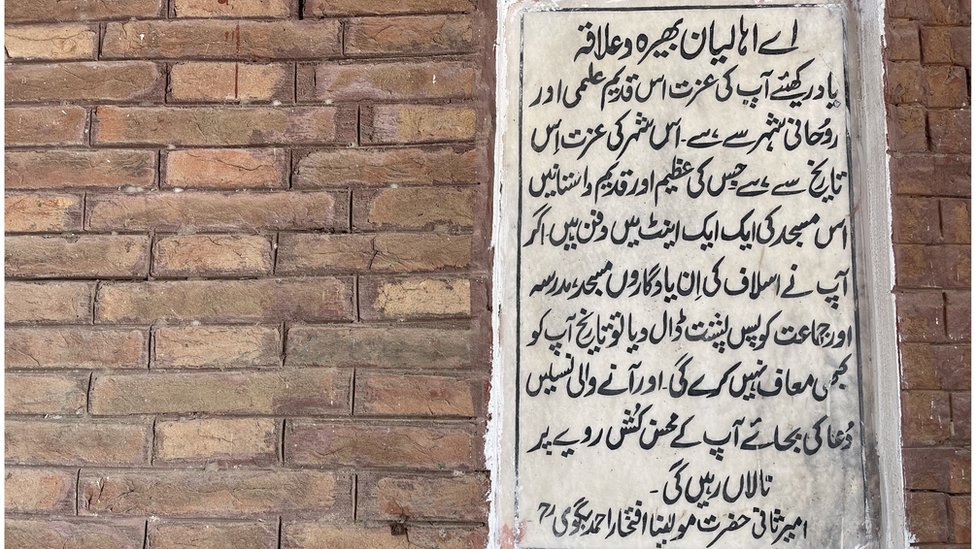 اے اہالیان بھیرہ و علاقہ
یاد رکھئے آپ کی عزت اس قدیم علمی اور
روحانی شہر سے ہے۔ اس شہر کی عزت اس
تاریخ سے ہے جس کی عظیم اور قدیم داستانیں
اس مسجد کی ایک ایک اینٹ میں دفن ہیں اگر
آپ نے اسلاف کی اِن یادگاروں مسجد، مدرسہ
اور جماعت کو پس پشت ڈال دیا تو تاریخ آپ کو
کبھی معاف نہیں کرے گی۔ اور آنے والی نسلیں
دُعا کی بجائے آپ کے محسن کُش رویے پر
نالاں رہیں گی۔
امیر ثانی حضرت مولینا افتخار احمد بگوی رح